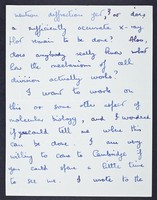 neutron diffraction yet, & or does
a sufficiently accurate x-ray
plot remain to be done. Also,
does anybody really know what
the mechanism of cell
division actually works?
I want to work on
this or some other aspect of
molecular biology, and I wondered
if you could tell me when this
can be done. I am very
willing to come to Cambridge if
you could spare a little time
to see me. I wrote to the